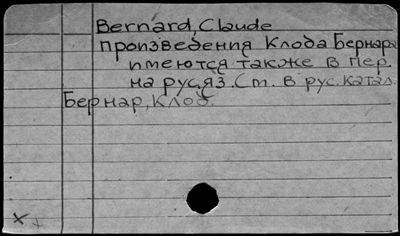 Bernard, Claude
произведения Клода Бернара
имеются также в пер.
на рус.яз. Ст. в рус. катал.
Бернар, Клод
x